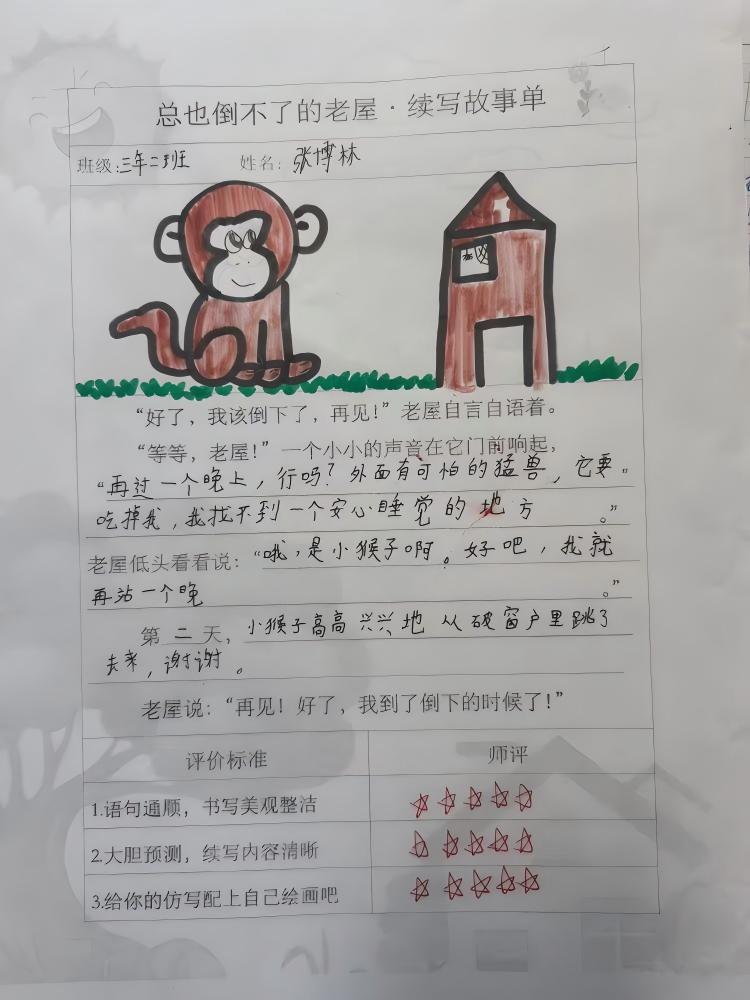 总也倒不了的老屋·续写故事单
班级:三年二班 姓名:张博林
“好了，我该倒下了，再见!”老屋自言自语着。
“等等，老屋!”一个小小的声音在它门前响起，
“再过一个晚上，行吗？外面有可怕的猛兽，它要
吃掉我，我找不到一个安心睡觉的地方。”
老屋低头看看说：“哦，是小猴子啊。好吧，我就
再站一个晚。”
第二天，小猴子高高兴兴地从破窗户里跳了
去来，谢谢。
老屋说：“再见！好了，我到了倒下的时候了!”
评价标准 师评
1.语句通顺，书写美观整洁
2.大胆预测，续写内容清晰
3.给你的仿写配上自己绘画吧